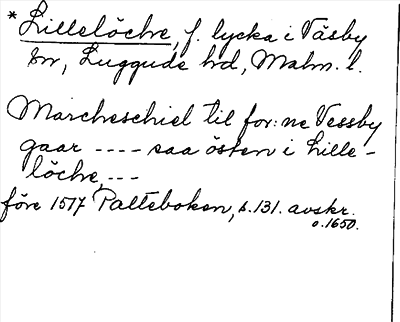 * Lillelöche, f. lycka i Väsby
sn, Luggude hd, Malm. l.
Marcheschiel til for:ne Vessby
gaar ---- saa östen i Lille-
löche ---
före 1517 Palteboken, s. 131. avskr.
o. 1650.